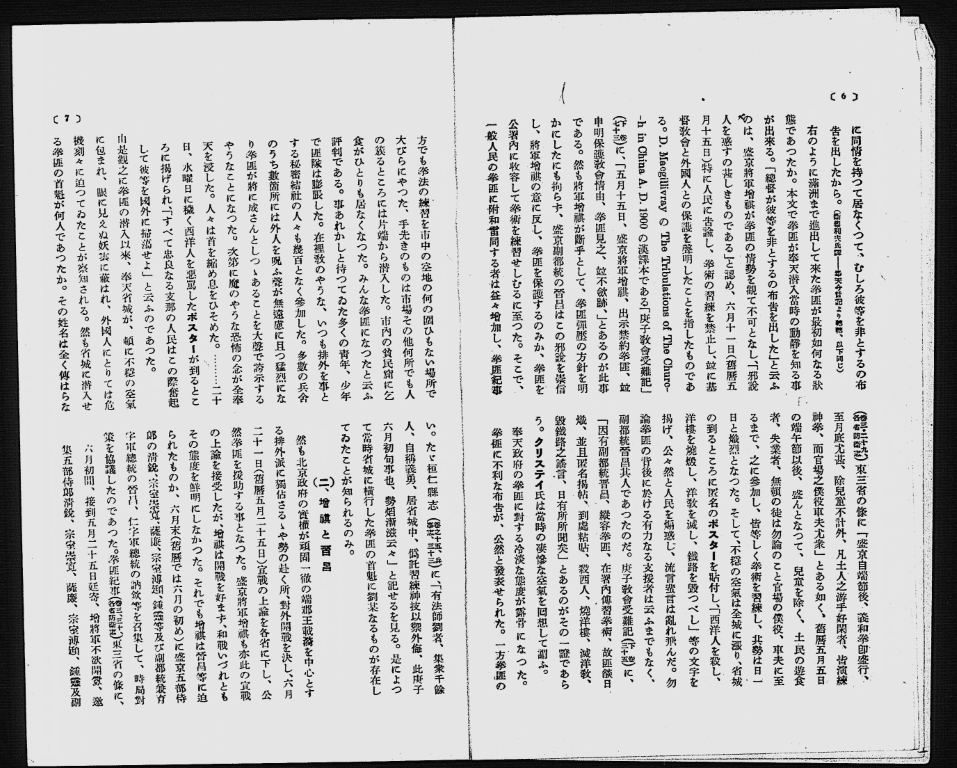 〔6〕
に同情を持つて居なくつて、むしろ彼等を非とするの布
告を出したから。
右のように滿洲まで進出して來た拳匪が最初如何なる狀
態であつたか。本文で拳匪が奉天潜入當時の動靜を知る事
が出來る。「總督が彼等を非とするの布告を出した」と云ふ
のは、盛京將軍增祺が拳匪の情勢を觀て不可となし、「邪說
人を惑すの甚しきものである」と認め、六月十一日(舊曆五
月十五日)特に人民に告諭し、拳術の習練を禁止し、竝に基
督敎會と外國人との保護を聲明したことを指したものであ
る。D. Macgillivray の The Tribulations of the Churc-
-h in China A. D. 1900 の漢譯本である「庚子敎會受難記」
(下卷七十三)に、「五月十五日、盛京將軍增祺、出示禁約拳匪、竝
申明保護敎會情由、拳匪見之、竝不斂跡」とあるのが此事
である。然も將軍增祺が斷乎として、拳匪彈壓の方針を明
かにしたにも拘らず、盛京副都統の晉昌はこの邪說を崇信
し、將軍增祺の意に反し、拳匪を保護するのみか、拳匪を
公署內に收容して拳術を練習せしむるに至つた。そこで、
一般人民の拳匪に附和雷同する者は益々增加し、拳匪記事
(卷三十二十九各省防衞志)東三省の條に「盛京自端節後、義和拳卽盛行、
至月底尤甚、除兒童不計外、凡土人之游手好閑者、皆演練
神拳、而官場之僕役車夫尤衆」とある如く、舊曆五月五日
の端午節以後、盛んとなつて、兒童を除く、土民の遊食
者、失業者、無賴の徒は勿論のこと官場の僕役、車夫に至
るまで、之に參加し、皆等しく拳術を習練し、其勢は日一
日と熾烈となつた。そして、不穩の空氣は全城に漲り、省城
の到るところに匿名のポスターを貼付し、「西洋人を殺し、
洋樓を燒燬し、洋敎を滅し、鐵路を毀つべし」等の文字を
揭げ、公々然と人民を煽惑し、流言蜚言は亂れ飛んだ。勿
論拳匪の背後に於ける有力なる支援者は云ふまでもなく、
副都統晉昌其人であつたのだ。庚子敎會受難記(下卷三十五)に、
「因有副都統晉昌、縱容拳匪、在署內傳習拳術、故匪燄日
熾、竝且匿名揭帖、到處粘貼、殺西人、燒洋樓、滅洋敎、
毀鐵路之謠言、日有所聞矣」とあるのがその一證であら
う。クリスティ氏は當時の凄慘な空氣を回想して謂ふ。
奉天政府の拳匪に對する冷淡な態度が露骨になつた。
拳匪に不利な布告が、公然と發表せられた。一方拳匪の
〔7〕
方でも拳法の練習を市中の空地の何の圍ひもない場所で
大びらにやつた。手先きのものは市場その他何所でも人
の簇るところには片端から潛入した。市內の貧民窟に乞
食がひとりも居なくなつた。みんな拳匪になつたと云ふ
評判である。事あれかしと待つてゐた多くの靑年、少年
で匪隊は膨脹した。在裡敎のやうな、いつも排外を事と
する秘密結社の人々も幾百となく參加した。多數の兵舍
のうち數箇所には外人を呪ふ聲が無遠慮に且つ猛烈にな
り拳匪が將に成さんとしつゝあるとを大聲で誇示する
やうなことになつた。次第に魔のやうな恐怖の念が全奉
天を浸した。人々は首を縮め息をひそめた。………二十
日、水曜日に穢く西洋人を惡罵したポスターが到るとこ
ろに揭げられ、「すべて忠良なる支那の人民はこの際奮起
して彼等を國外に掃蕩せよ」と云ふのであつた。
由是觀之に拳匪の潛入以來、奉天省城が、頓に不穩の空氣
に包まれ、眼に見えぬ妖雲に蔽はれ、外國人にとりては危
機刻々に迫つてゐたことが察知される。然も省城に潛入せ
る拳匪の首魁が何人であつたか。その姓名は全く傳はらな
い。たゞ桓仁縣志に、「有法師劉者、集衆千餘
人、自稱義勇、居省城中、僞託習練神技以禦外侮、此庚子
六月初旬事也、勢焰漸滋云々」と記せるを見る。是によつ
て當時省城に橫行した拳匪の首魁に劉某なるものが存在し
てゐたことが知られるのみ。
(二、增祺と晋昌
然も北京政府の實權が頑固一徹の端郡王載漪を中心とす
る排外派に獨佔さるゝや勢の赴く所、對外開戰を決し、六月
二十一日(舊曆五月二十五日)宣戰の上諭を各省に下し、公
然拳匪を援助する事となつた。盛京將軍增祺も亦此の宣戰
の上諭を接受したが、增祺は開戰を好まず、和戰いづれとも
その態度を鮮明にしなかつた。それでも增祺は晉昌等に迫
られたものか、六月末(舊曆では六月の初め)に盛京五部侍
郞の淸銳、宗室崇寬、薩廉、宗室溥頲、鍾靈等及び副都統兼育
字軍總統の晉昌、仁字軍總統の訥欽等を召集して、時局對
策を協議したのであつた。拳匪紀事(卷三三十二各省防衞志)東三省の條に、
六月初間、接到五月二十五日廷寄、增將軍不欲開釁、邀
集五部侍郞淸銳、宗室崇寬、薩廉、宗室溥頲、鍾靈及副